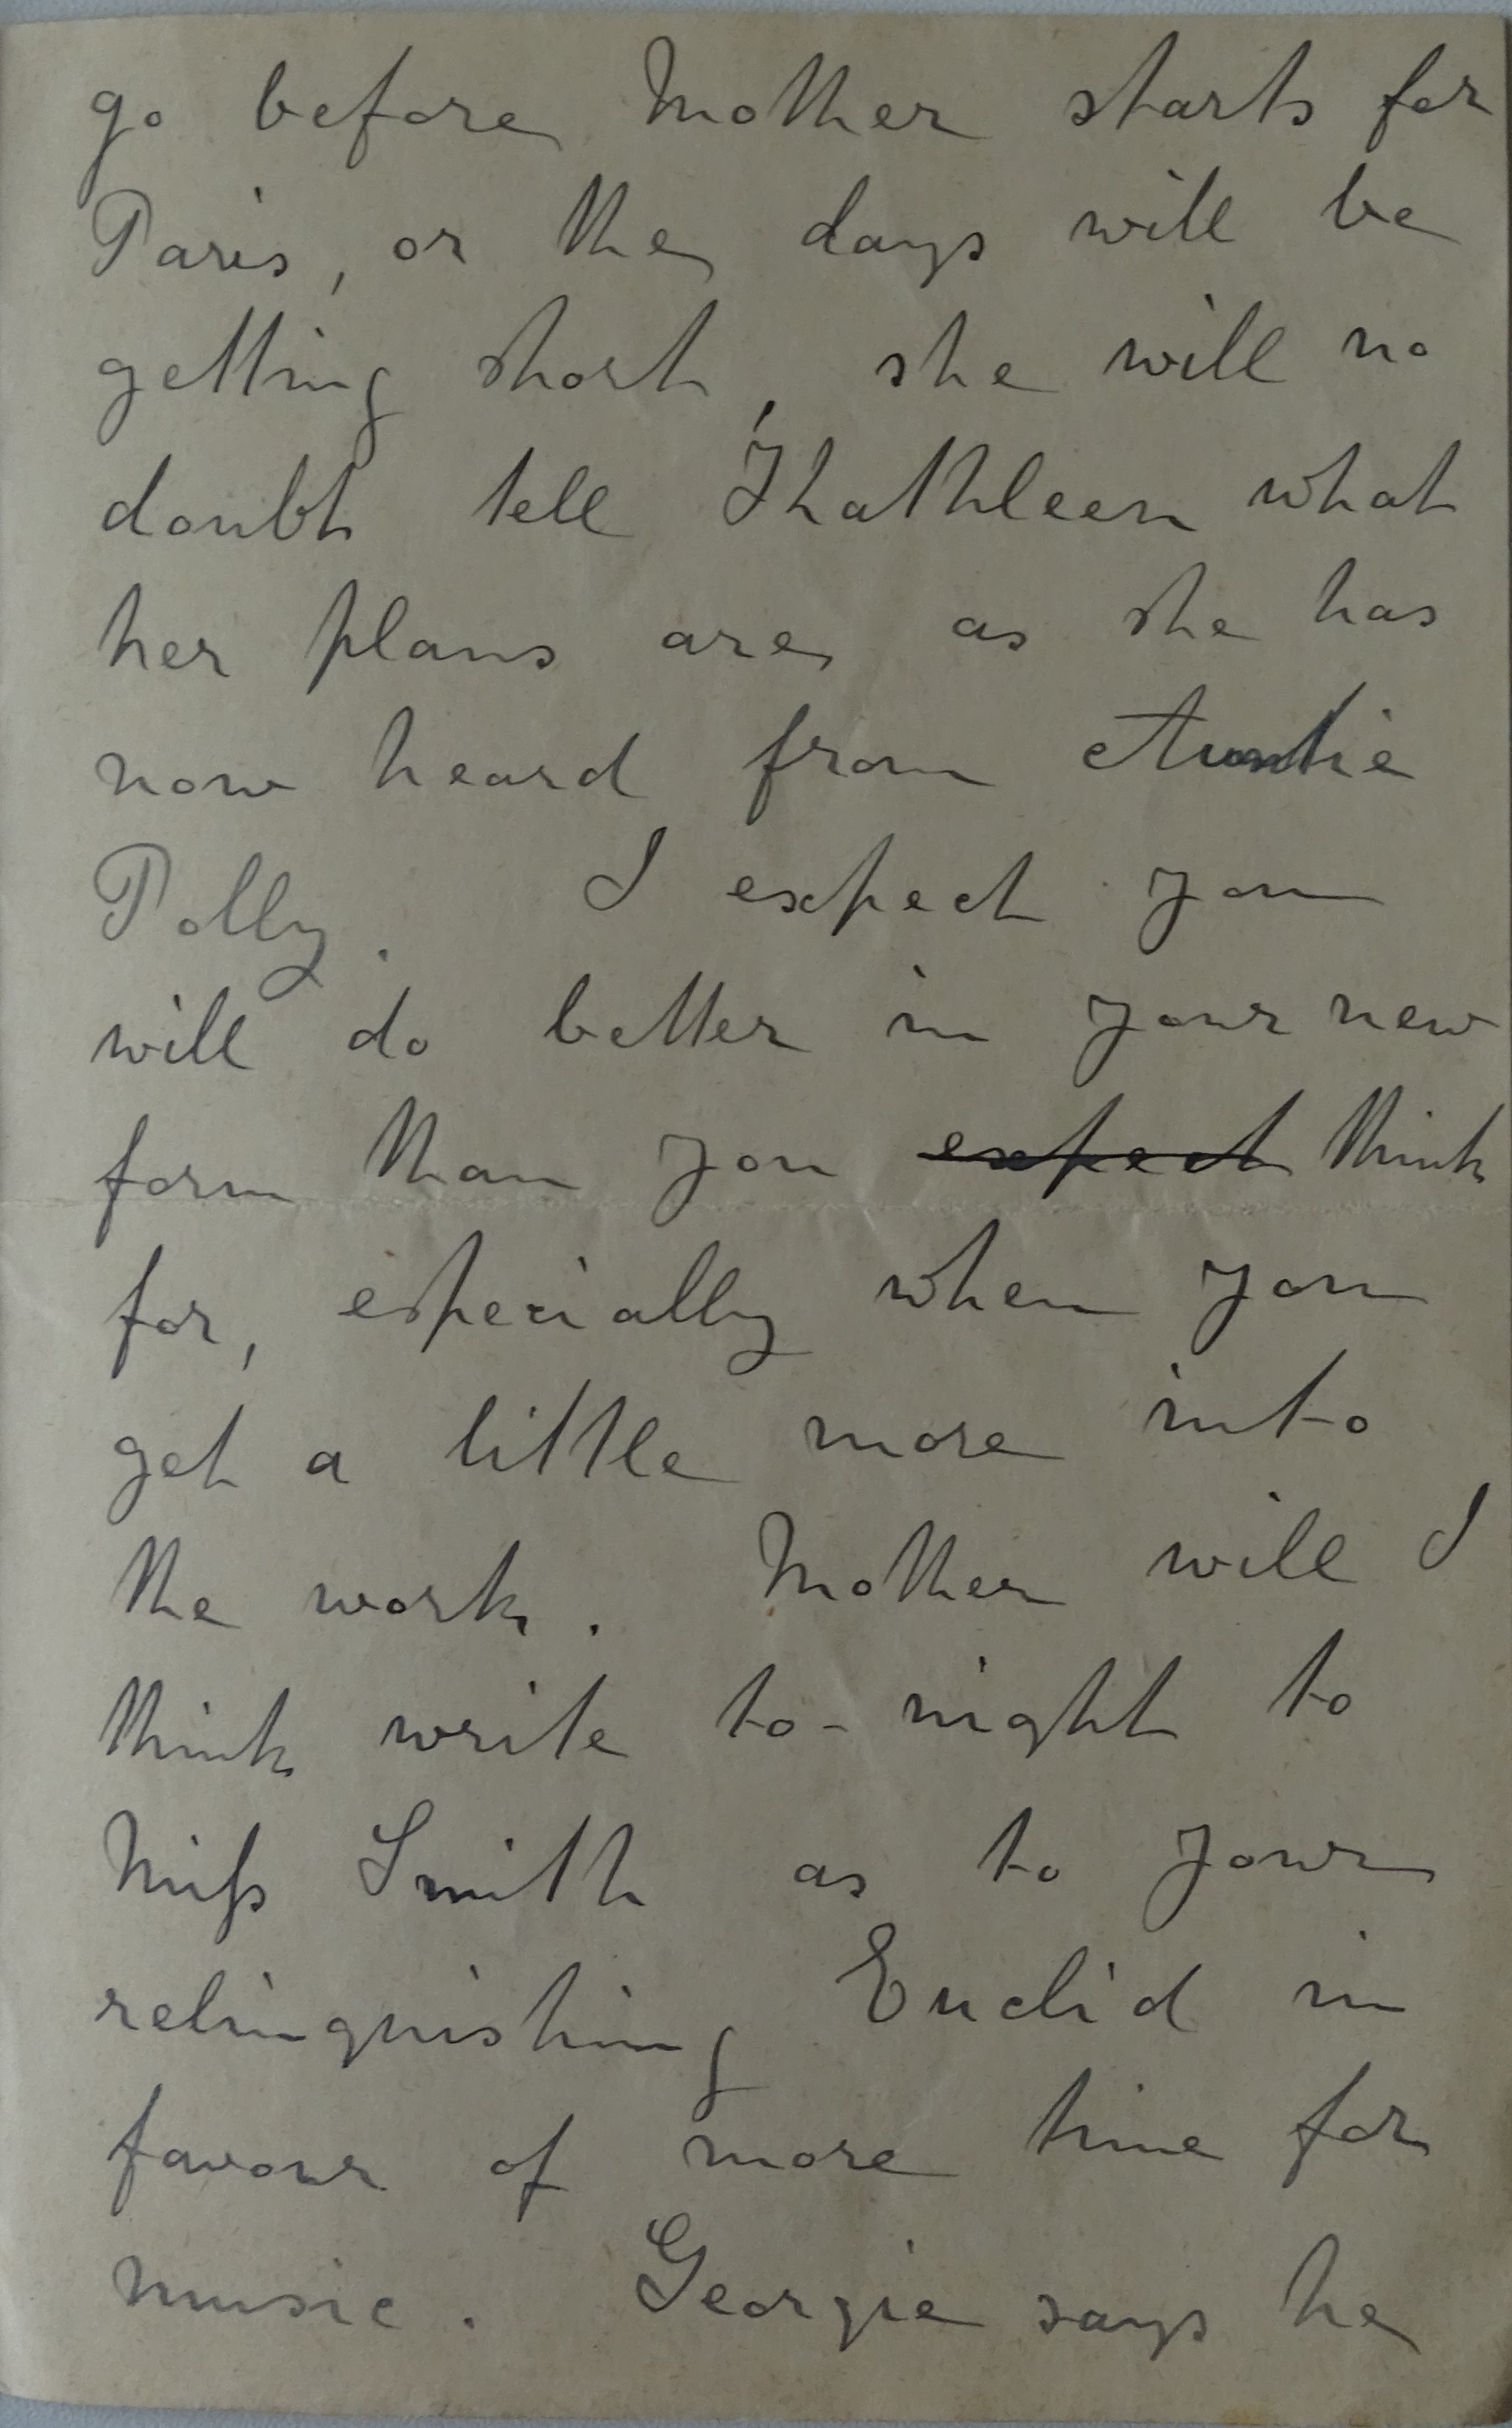 go before Mother starts for
Paris, or the days will be
getting short, she will no
doubt tell Khathleen what
her plans are as she has
now heard from Auntie
Polly. I expect you
will do better in your new
form than you expect think
for, especially when you
get a little more into
the work. Mother will I
think write to-night to
Miss Smith as to your
relinquishing Euclid in
favour of more time for
music. Georgie says he